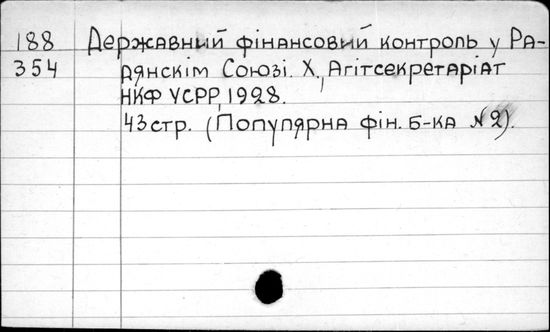 188 Державний фінансовий контроль у Ра-
354 дянскім Союзі. Х., Агітсекретаріат
НКФ УСРР, 1928.
43стр. (Популярна фін. Б-ка №2).